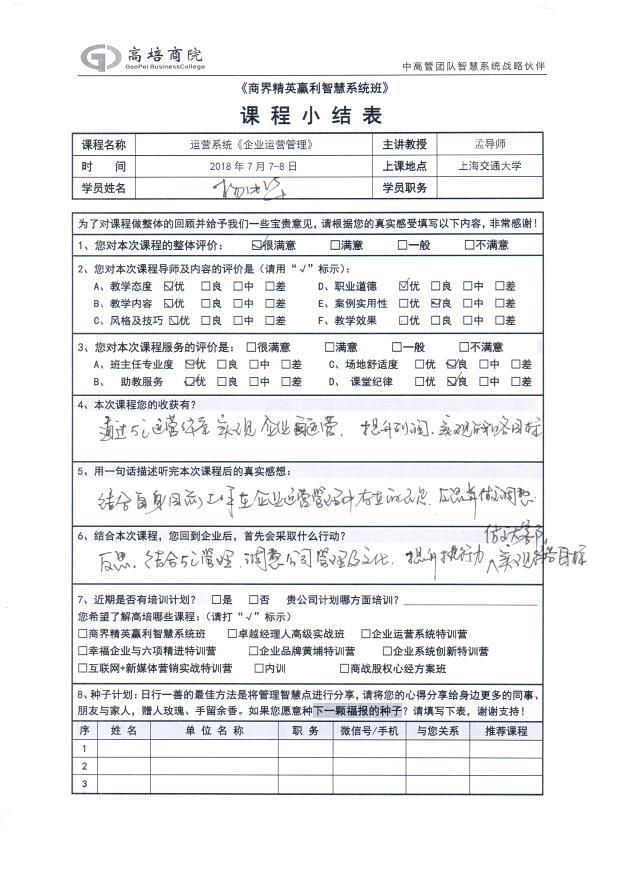 高培商院
GaoPei BusinessCollege
中高管团队智慧系统战略伙伴
《商界精英赢利智慧系统班》
课程小结表
课程名称 运营系统《企业运营管理》 主讲教授 孟导师
时 间 2018年7月7-8日 上课地点 上海交通大学
学员姓名 学员职务
为了对课程做整体的回顾并给予我们一些宝贵意见,请根据您的真实感受填写以下内容,非常感谢!
1、您对本次课程的整体评价: ☑很满意 □满意 □一般 □不满意
2、您对本次课程导师及内容的评价是(请用“√”标示):
A、教学态度 ☑优 □良 □中 □差 D、职业道德 ☑优 □良 □中 □差
B、教学内容 ☑优 □良 □中 □差 E、案例实用性 □优 ☑良 □中 □差
C、风格及技巧 ☑优 □良 □中 □差 F、教学效果 □优 □良 □中 □差
3、您对本次课程服务的评价是: □很满意 □满意 □一般 □不满意
A、班主任专业度 ☑优 □良 □中 □差 C、场地舒适度 □优 ☑良 □中 □差
B、 助教服务 ☑优 □良 □中 □差 D、 课堂纪律 □优 ☑良 □中 □差
4、本次课程您的收获有?
通过5i运营 实现企业运营、提升利润、实现战略目标
5、用一句话描述听完本次课程后的真实感想:
结合自身目前工作在企业运营管理中存在的 反思并做调整
6、结合本次课程,您回到企业后,首先会采取什么行动?
反思、结合5i管理、调整公司管理及文化、提升执行力、实现目标
7、近期是否有培训计划? □是 □否 贵公司计划哪方面培训?
您希望了解高培哪些课程:(请打“√”标示)
□商界精英赢利智慧系统班 □卓越经理人高级实战班 □企业运营系统特训营
□幸福企业与六项精进特训营 □企业品牌黄埔特训营 □企业系统创新特训营
□互联网+新媒体营销实战特训营 □内训 □商战股权心经方案班
8、种子计划:日行一善的最佳方法是将管理智慧点进行分享,请将您的心得分享给身边更多的同事、
朋友与家人,赠人玫瑰、手留余香。如果您愿意种下一颗福报的种子?请填写下表,谢谢支持!
序 姓名 单位名称 职务 微信号/手机 与您关系 推荐课程
1
2
3